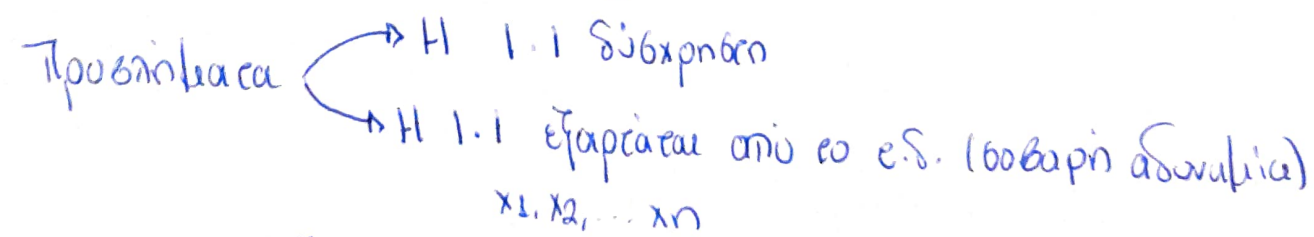 Προβλήματα → Η 1.1 δύσχρηστη
→ Η 1.1 εξαρτάται από το τ.δ. (σοβαρή αδυναμία)
x1, x2, ... xn